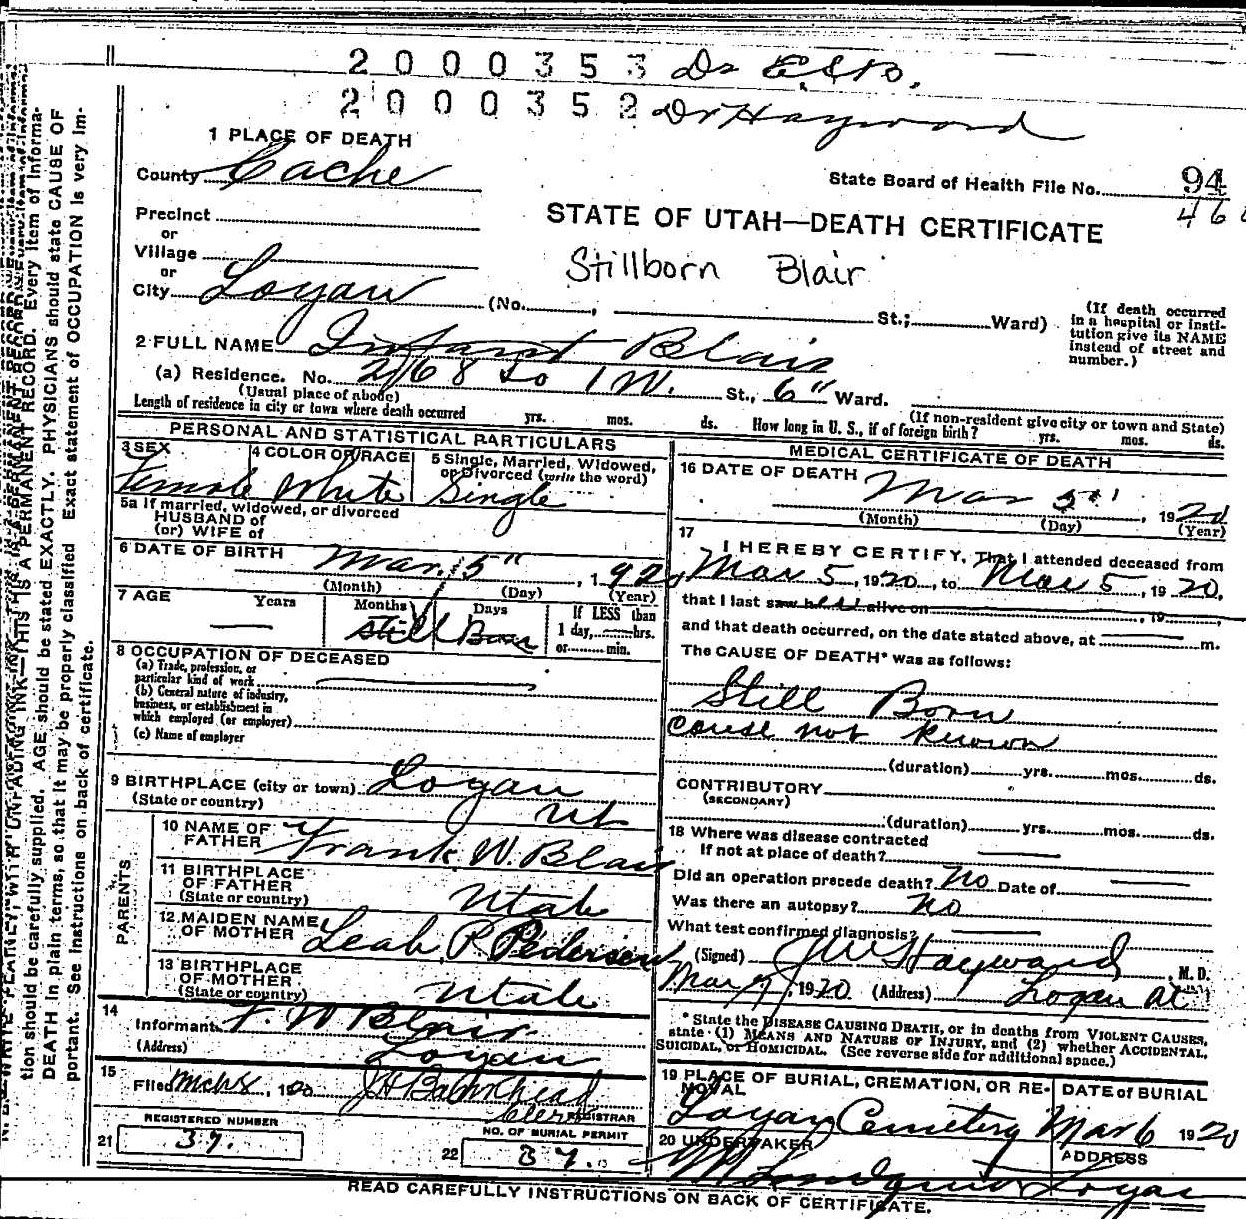 2000353 Dr E S B.
2000352 Dr Hayward
1 PLACE OF DEATH
County Cache
State Board of Health File No. 94
46
Precinct
or
STATE OF UTAH—DEATH CERTIFICATE
Village
or
Stillborn Blair
City Logan (No. , St.; Ward)
(If death occurred in a hospital or institution give its NAME instead of street and number.)
2 FULL NAME Infant Blair
(a) Residence. No. 268 So 1 W. St., 6" Ward.
(Usual place of abode) (If non-resident give city or town and State)
Length of residence in city or town where death occurred yrs. mos. ds. How long in U. S., if of foreign birth? yrs. mos. ds.
PERSONAL AND STATISTICAL PARTICULARS
3 SEX
Female
4 COLOR OR RACE
White
5 Single, Married, Widowed,
or Divorced (write the word)
Single
5a If married, widowed, or divorced
HUSBAND of
(or) WIFE of
6 DATE OF BIRTH Mar. 5", 1920
(Month) (Day) (Year)
7 AGE Years Months Days If LESS than
Still Born 1 day, hrs.
or min.
8 OCCUPATION OF DECEASED
(a) Trade, profession, or
particular kind of work
(b) General nature of industry,
business, or establishment in
which employed (or employer)
(c) Name of employer
9 BIRTHPLACE (city or town) Logan
(State or country) Ut
PARENTS
10 NAME OF
FATHER Frank W. Blair
11 BIRTHPLACE
OF FATHER
(State or country) Utah
12 MAIDEN NAME
OF MOTHER Leah P. Pedersen
13 BIRTHPLACE
OF MOTHER
(State or country) Utah
14
Informant F. W Blair
(Address) Logan
15
Filed Mch 8, 1920
Clerk REGISTRAR
REGISTERED NUMBER
21 37.
NO. OF BURIAL PERMIT
22 37.
MEDICAL CERTIFICATE OF DEATH
16 DATE OF DEATH Mar 5th, 1920
(Month) (Day) (Year)
17
I HEREBY CERTIFY, That I attended deceased from
Mar 5, 1920, to Mar 5, 1920,
that I last saw her alive on , 19 ,
and that death occurred, on the date stated above, at m.
The CAUSE OF DEATH* was as follows:
Still Born
cause not known
(duration) yrs. mos. ds.
CONTRIBUTORY
(SECONDARY)
(duration) yrs. mos. ds.
18 Where was disease contracted
If not at place of death?
Did an operation precede death? No Date of
Was there an autopsy? No
What test confirmed diagnosis?
(Signed) J W Hayward, M. D.
Mar 7, 1920 (Address) Logan Ut
* State the DISEASE CAUSING DEATH, or in deaths from VIOLENT CAUSES,
state (1) MEANS AND NATURE OF INJURY, and (2) whether ACCIDENTAL,
SUICIDAL, or HOMICIDAL. (See reverse side for additional space.)
19 PLACE OF BURIAL, CREMATION, OR RE-
MOVAL
Logan Cemetery
DATE of BURIAL
Mar 6 1920
20 UNDERTAKER
ADDRESS
Logan
READ CAREFULLY INSTRUCTIONS ON BACK OF CERTIFICATE.
tion should be carefully supplied. AGE should be stated EXACTLY. PHYSICIANS should state CAUSE OF
DEATH in plain terms, so that it may be properly classified Exact statement of OCCUPATION is very im-
portant. See instructions on back of certificate.